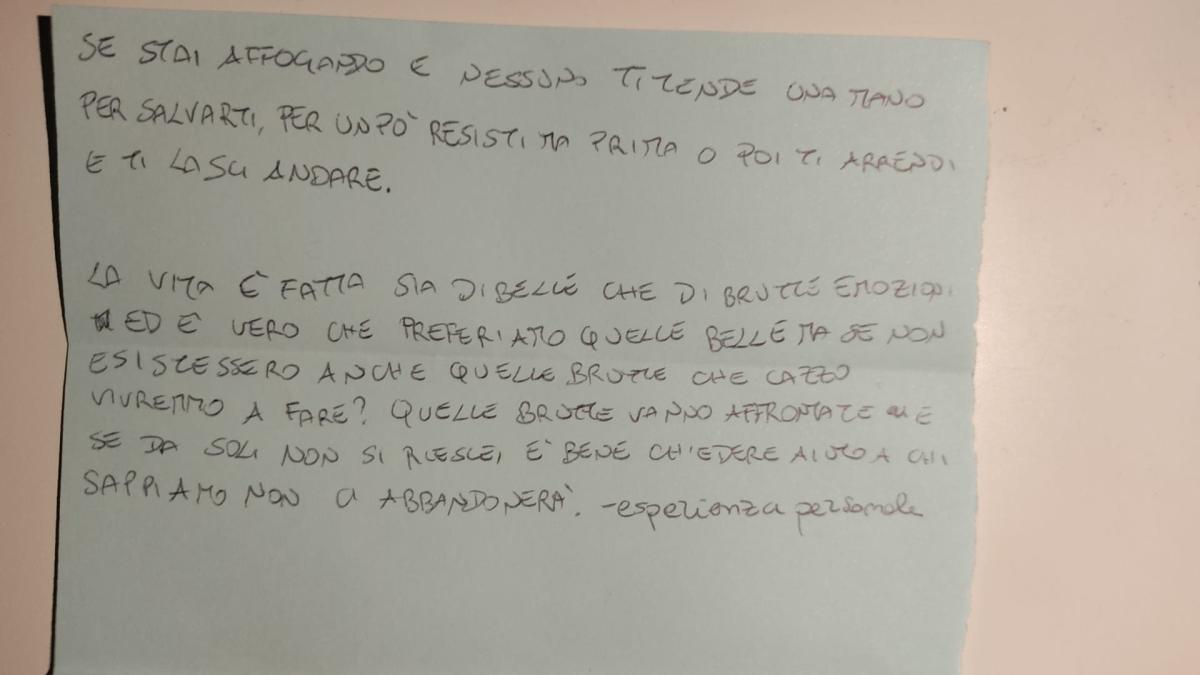 SE STAI AFFOGANDO E NESSUNO TI TENDE UNA MANO
PER SALVARTI, PER UN PÒ RESISTI MA PRIMA O POI TI ARRENDI
E TI LASCI ANDARE.
LA VITA È FATTA SIA DI BELLE CHE DI BRUTTE EMOZIONI
ED È VERO CHE PREFERIAMO QUELLE BELLE MA SE NON
ESISTESSERO ANCHE QUELLE BRUTTE CHE CAZZO
VIVREMMO A FARE? QUELLE BRUTTE VANNO AFFRONTATE E
SE DA SOLI NON SI RIESCE, È BENE CHIEDERE AIUTO A CHI
SAPPIAMO NON CI ABBANDONERÀ. -esperienza personale